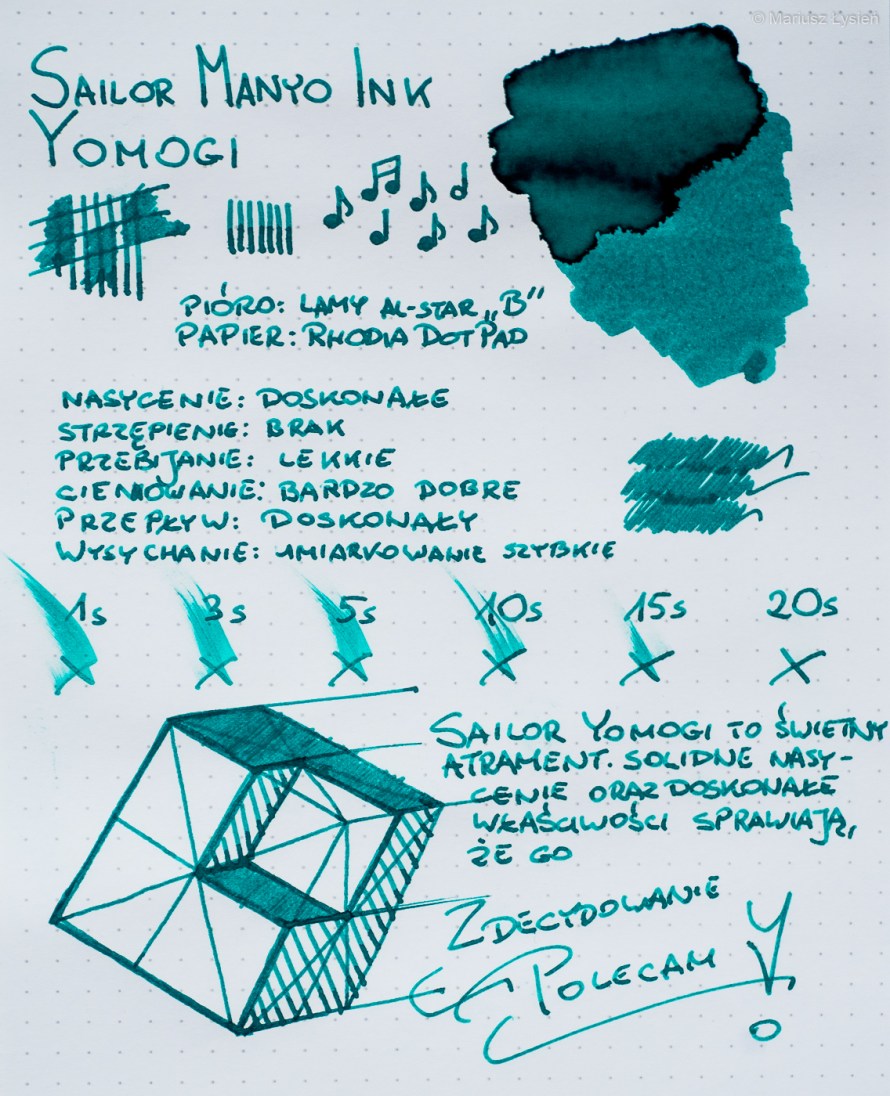 © Mariusz Łysień
SAILOR MANYO INK
YOMOGI
PIÓRO: LAMY AL-STAR „B”
PAPIER: RHODIA DOTPAD
NASYCENIE: DOSKONAŁE
STRZĘPIENIE: BRAK
PRZEBIJANIE: LEKKIE
CIENIOWANIE: BARDZO DOBRE
PRZEPŁYW: DOSKONAŁY
WYSYCHANIE: UMIARKOWANIE SZYBKIE
1s 3s 5s 10s 15s 20s
SAILOR YOMOGI TO ŚWIETNY
ATRAMENT. SOLIDNE NASY-
CENIE ORAZ DOSKONAŁE
WŁAŚCIWOŚCI SPRAWIAJĄ,
ŻE GO
ZDECYDOWANIE
POLECAM!